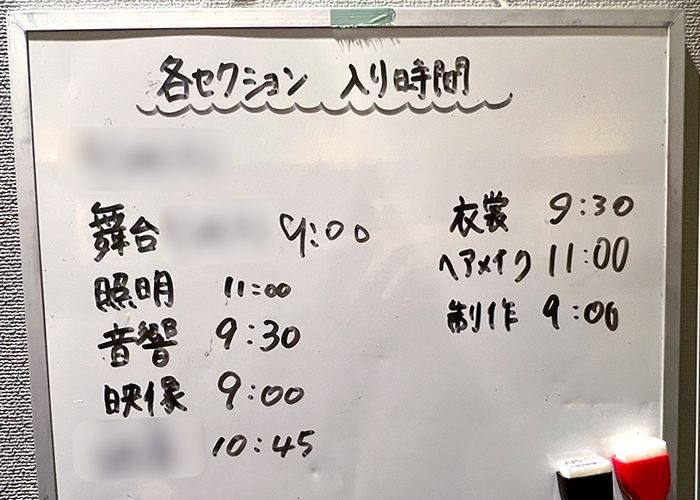 各セクション 入り時間
舞台 9:00
照明 11:00
音響 9:30
映像 9:00
10:45
衣裳 9:30
ヘアメイク 11:00
制作 9:00